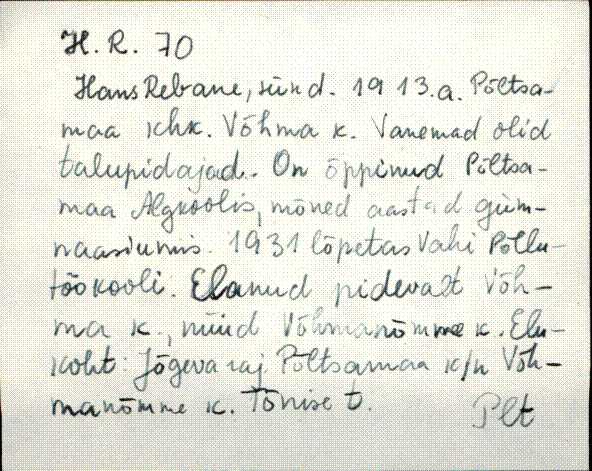 H. R. 70
Hans Rebane, sünd. 1913.a. Põltsa-
maa khk. Võhma k. Vanemad olid
talupidajad. On õppinud Põltsa-
maa Algkoolis, mõned aastad güm-
naasiumis. 1931 lõpetas Vahi Põllu-
töökooli. Elanud pidevalt Võh-
ma k., nüüd Võhmanõmme k. Elu-
koht: Jõgeva raj Põltsamaa k/n Võh-
manõmme k. Tõnise t.
Plt